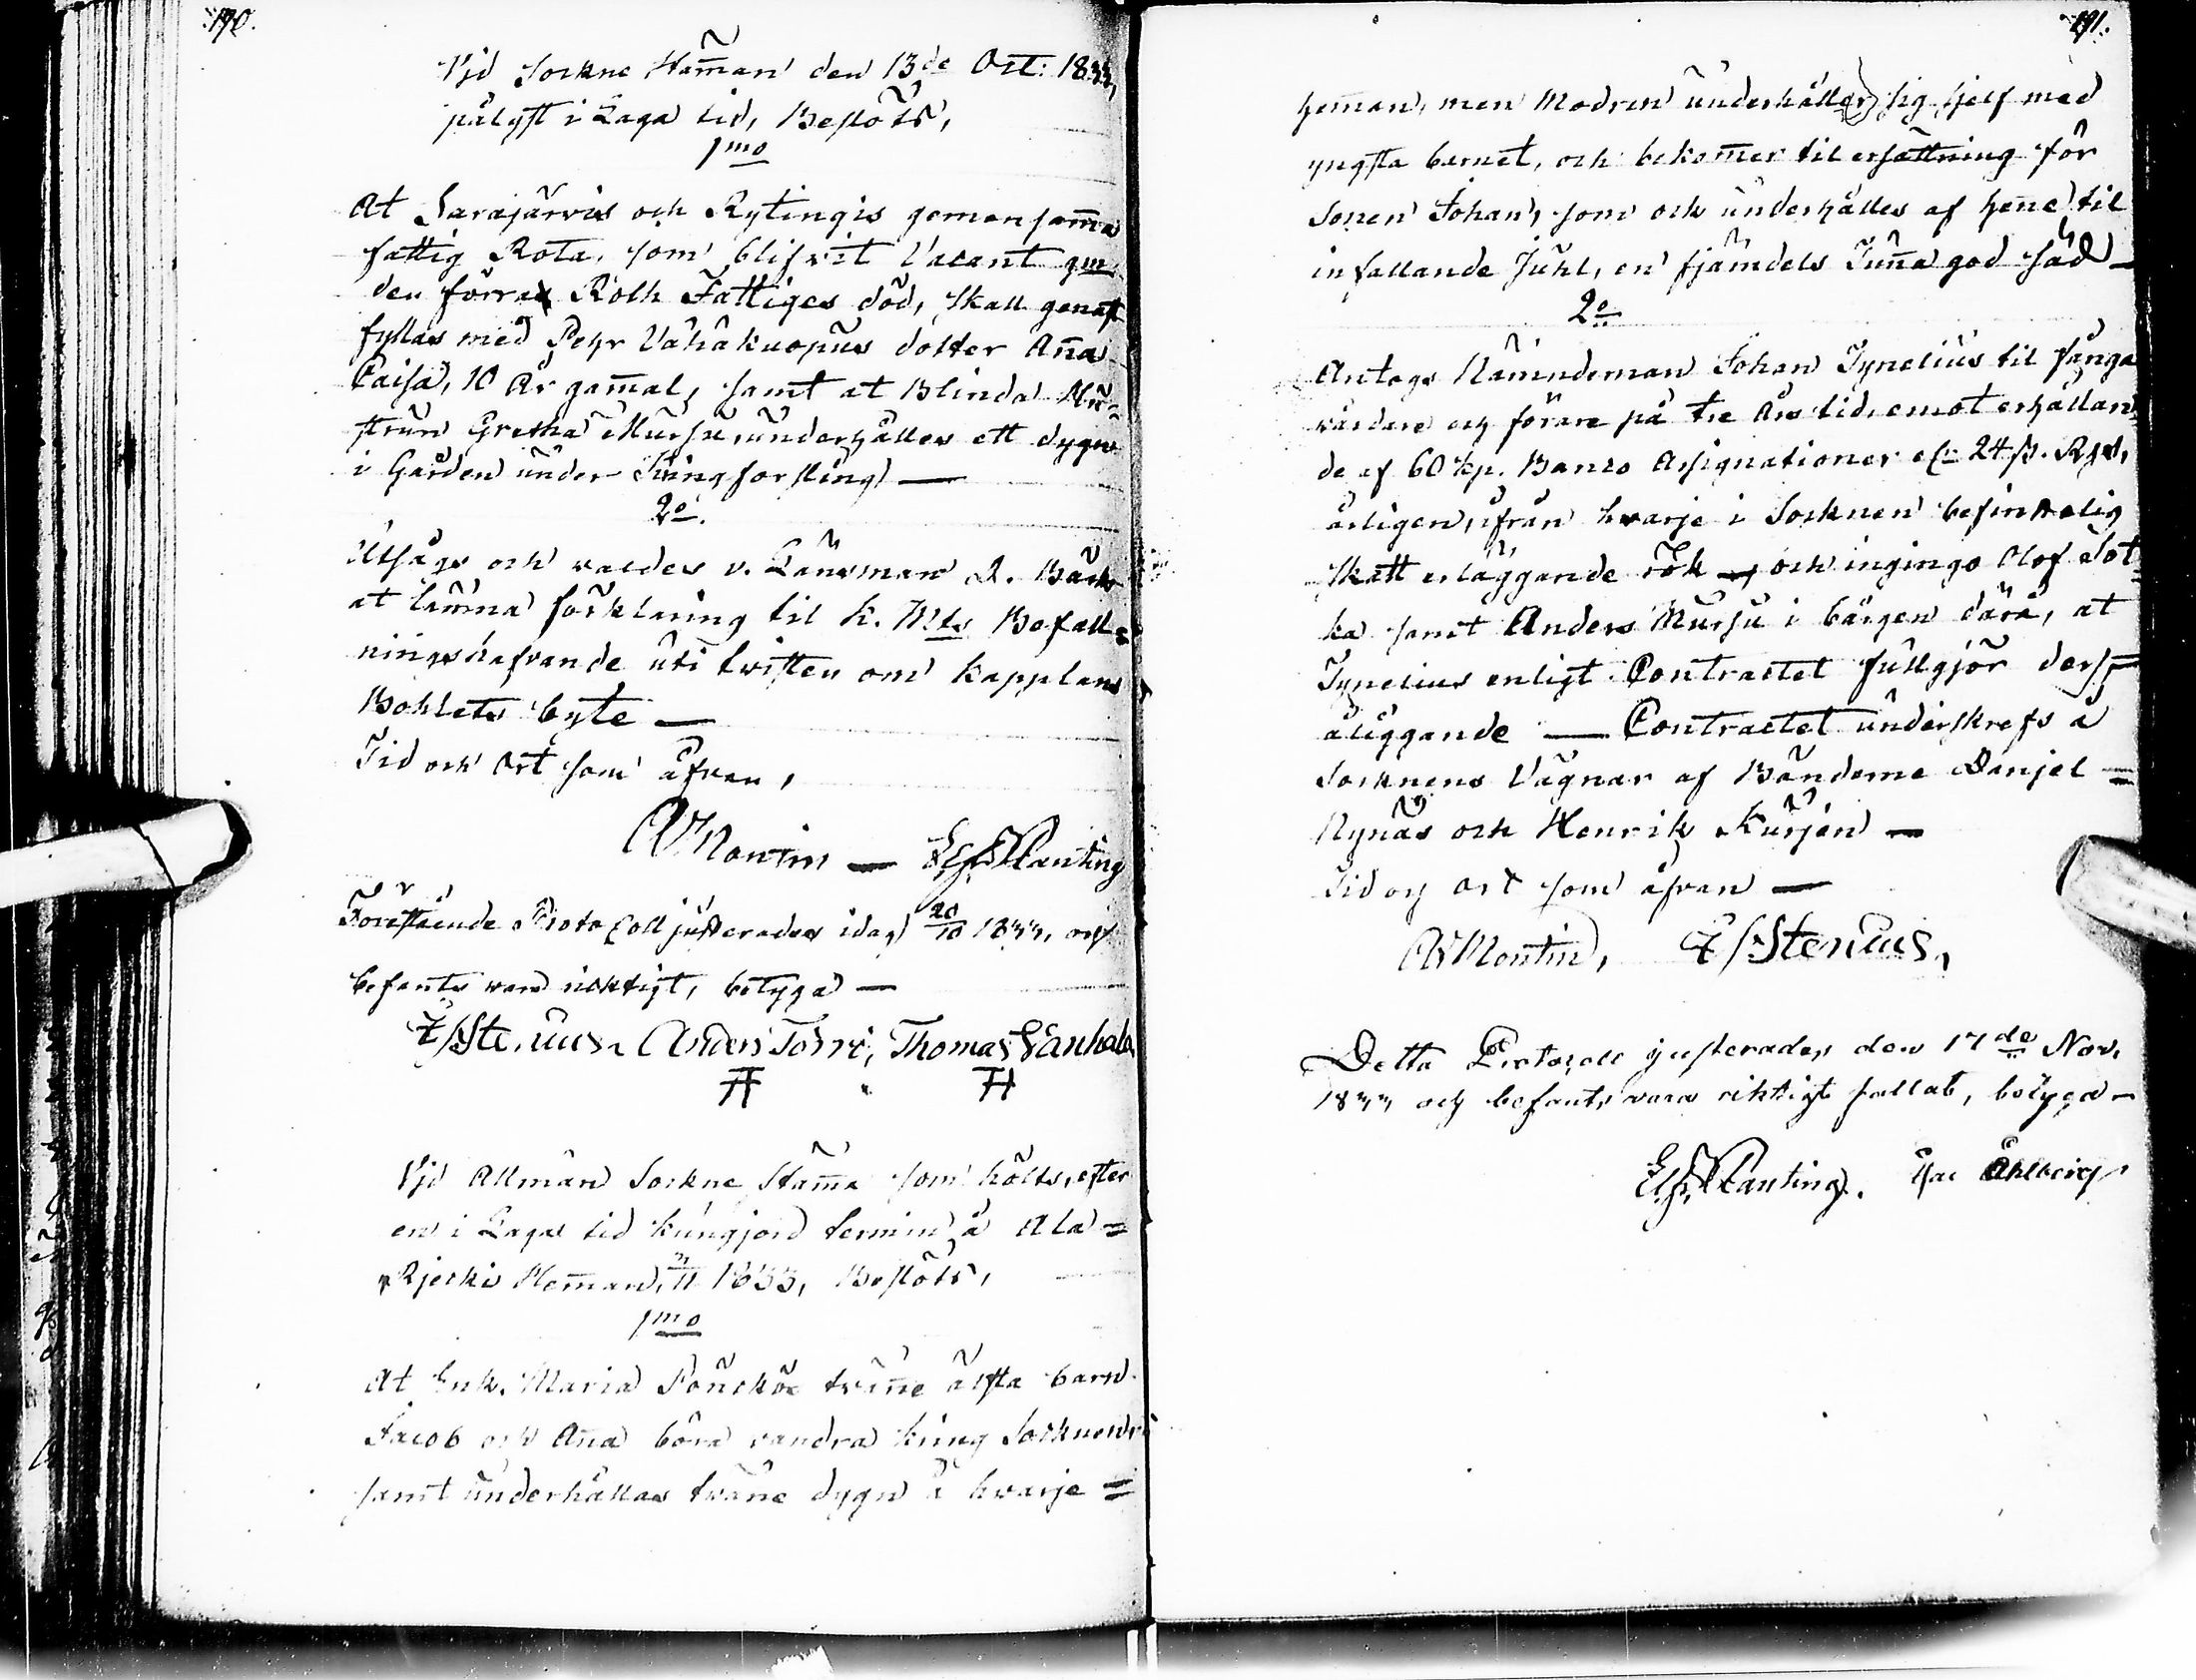 190.
Vid Sockne Stäm̄an den 13de Oct: 1833,
pålyst i Laga tid, Beslöts,
1mo
At Sarajärvis och Rytingis gemensam̄a
fattig Rota, som blifvit Vacant gm
den förra Roth Fattiges död, skall genast
fyllas med Pehr Vähäkuopus dotter An̄a
Caisa, 10 År gam̄al, samt at Blinda
Gretha Mursu underhålles ett dygn
i Gården under kringforsling —
2o.
Utsågs och valdes v. Länsman
at läm̄na förklaring til K. Mts Befall=
ningshafvande uti tvisten om Kapplans
Bohlets byte —
Tid och Ort som åfvan,
Montin — Planting
Förestående Protocoll justerades idag 20/10 1833, och
befants vara riktigt, betyga —
Stenius, Anders Torvi, Thomas Vanhala
Vid Allmän Sockne Stäm̄a som hölts, efter
en i Laga tid kungjord termin å Ala=
Rjecki Hem̄an, 1833, Beslöts,
1mo
At Enk. Maria tvän̄e älsta barn
Jacob och An̄a böra vandra kring Socknen
samt underhållas tväne dygn å hvarje =
191.
heman, men Modren underhåller sig sjelf med
yngsta barnet, och bekom̄er til ersättning för
Sonen Johan, som ock underhålles af hen̄e til
infallande Juhl, en fjämdels Tun̄a god säd —
2o
Antogs Nämndeman Johan Tynelius til fånga
vårdare och förare på tre Års tid, emot erhållan=
de af 60 kp. Banco Assignationer el: 24 s. Rgs,
årligen, ifrån hvarje i Socknen befintelig
skatt erläggande rök — och ingingo Olof Sot=
ka samt Anders Mursu i bårgen därå, at
Tynelius enligt Contractet fullgjör dess
åliggande — Contractet underskrefs å
Socknens Vägnar af Bönderne Danjel =
Nynäs och Henrik Kurjen —
Tid och Ort som åfvan —
Montin, Stenius,
Detta Protocoll justerades den 17de Nov.
1833 och befants vara riktigt fattat, betyga —
Planting. Åhlberg,